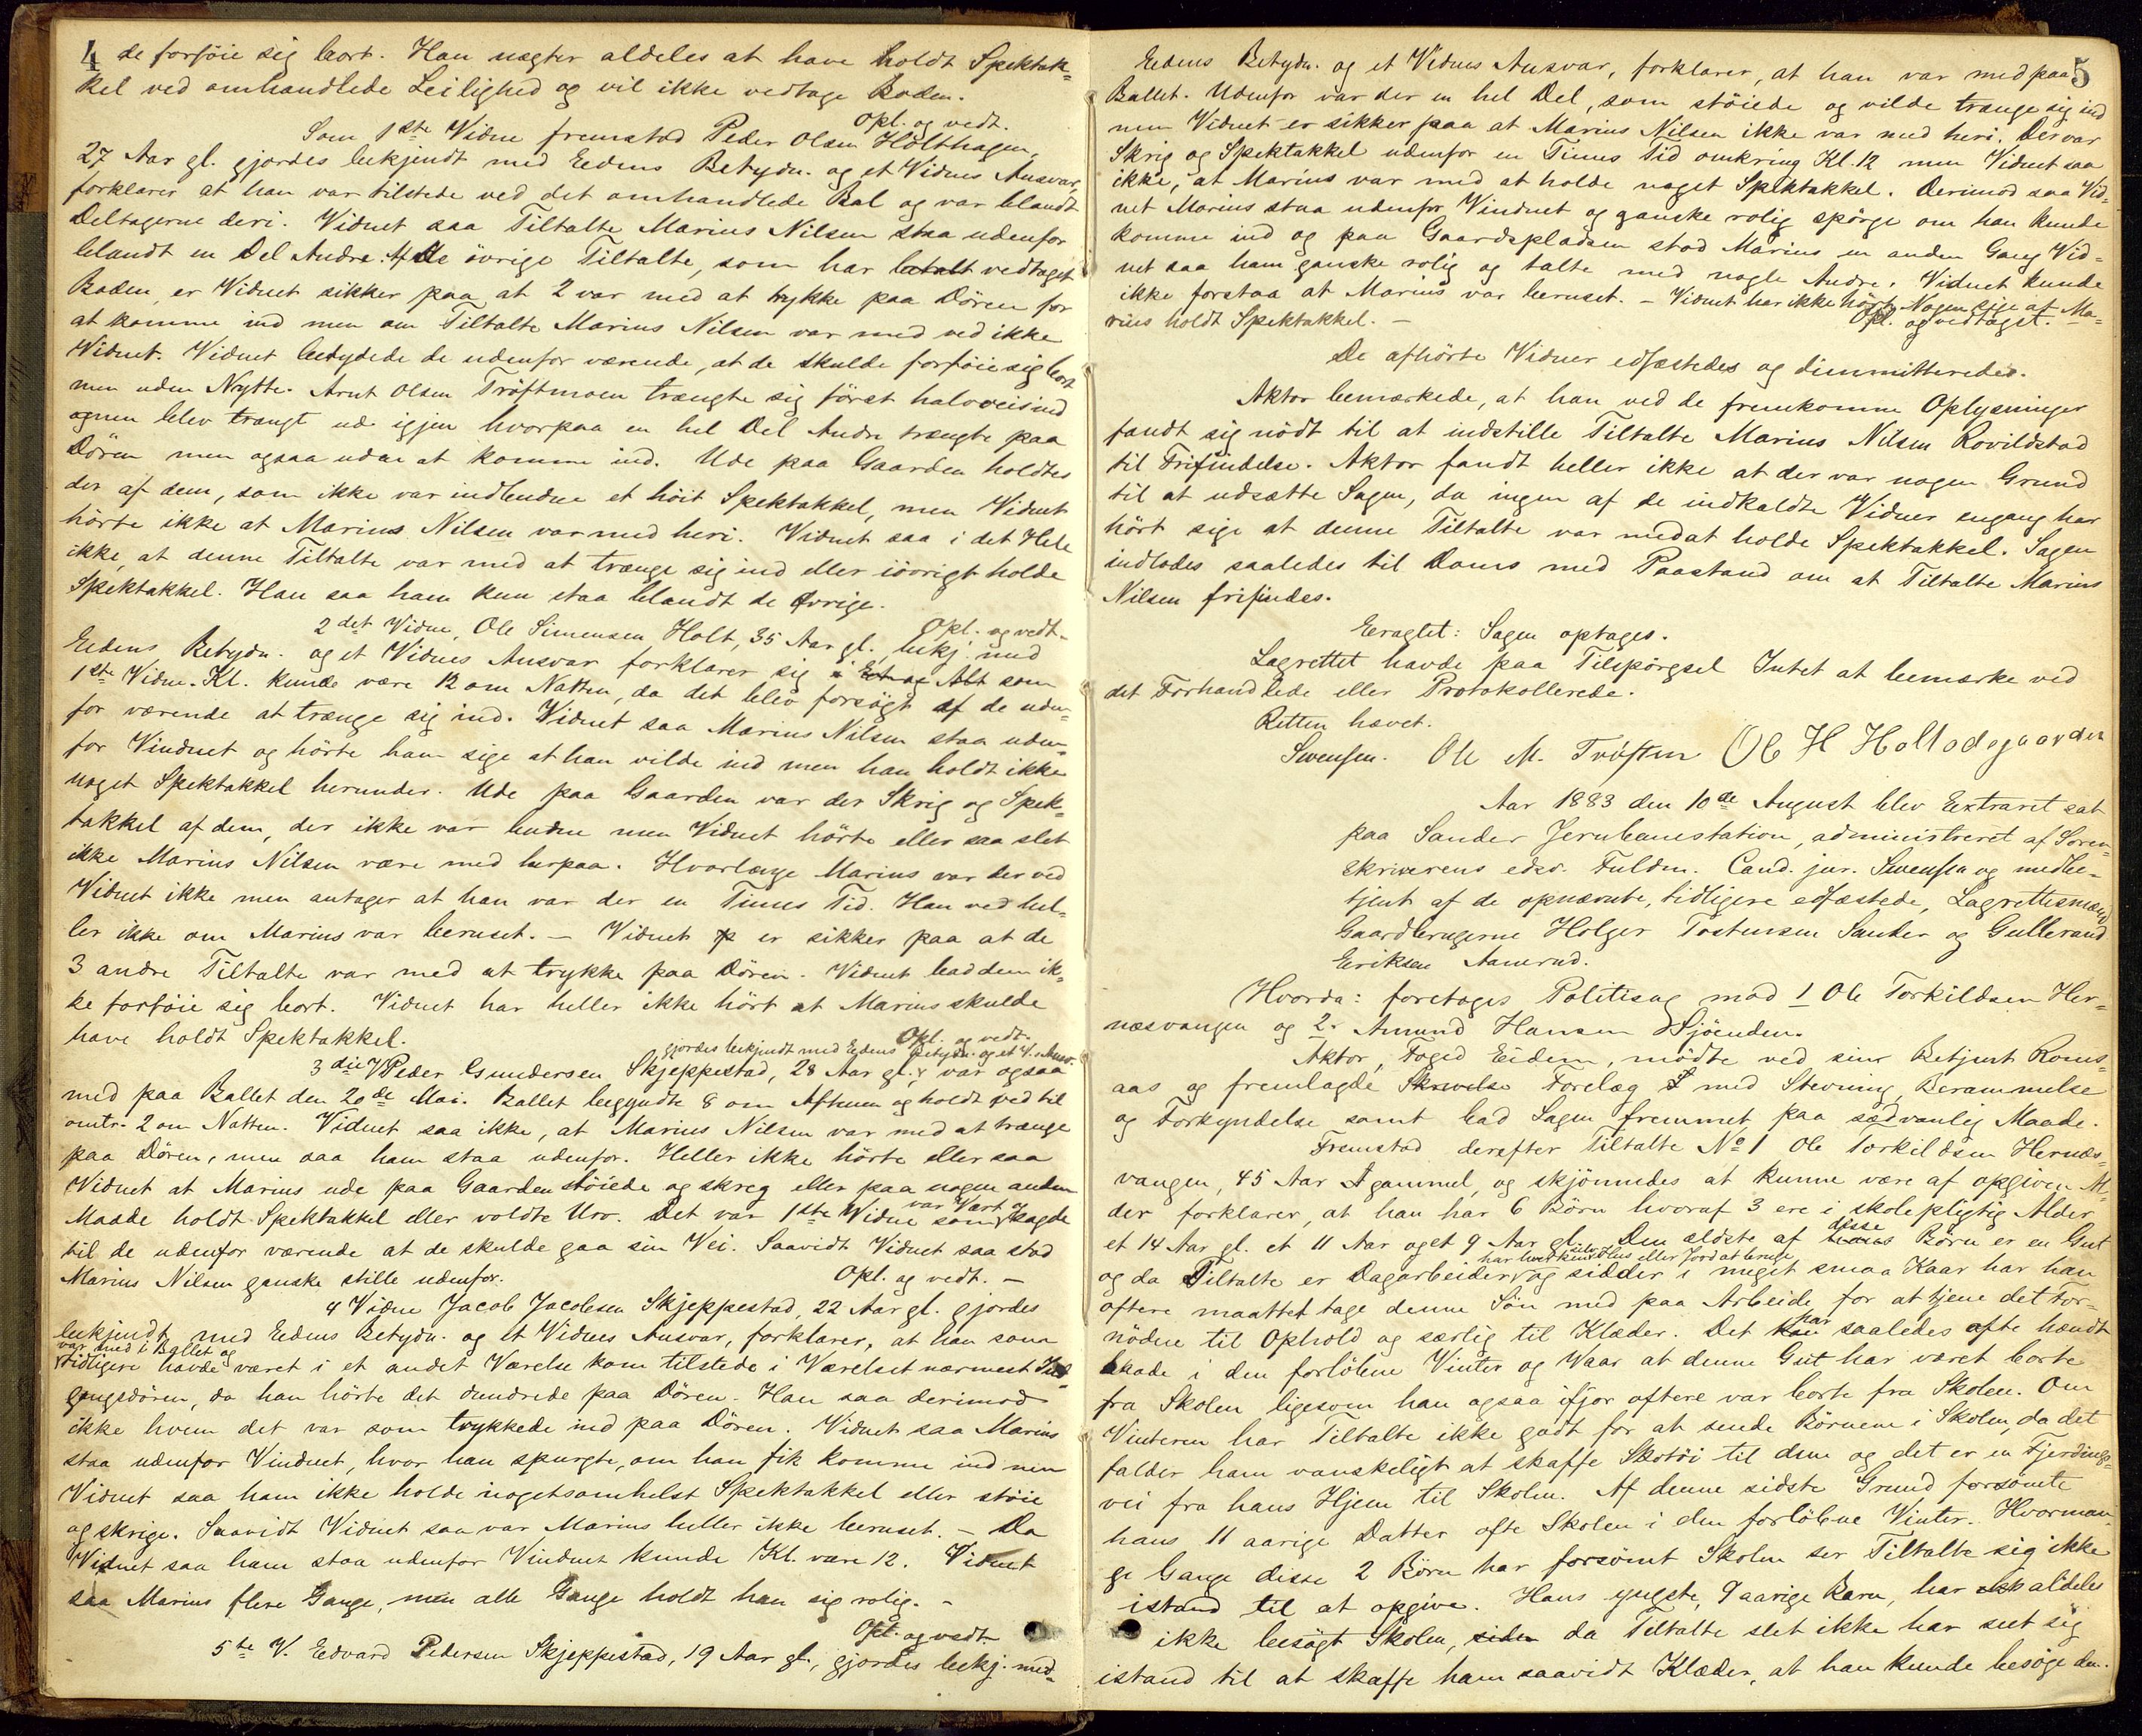 4 de forföie sig bort. Han nægter aldeles at have holdt Spektak-
kel ved omhandlede Leilighed og vil ikke vedtage Boden.
Opl. og vedt.
Som 1ste Vidne fremstod Peder Olsen Holthagen,
27 Aar gl. gjordes bekjendt med Eedens Betydn. og et Vidnes Ansvar,
forklarer at han var tilstede ved det omhandlede Bal og var blandt
Deltagerne deri. Vidnet saa Tiltalte Marius Nilsen staa udenfor
blandt en Del Andre. Af de övrige Tiltalte, som har betalt vedtaget
Boden, er Vidnet sikker paa, at 2 var med at trykke paa Dören for
at komme ind men om Tiltalte Marius Nilsen var med ved ikke
Vidnet. Vidnet betydede de udenfor værende, at de skulde forföie sig bort
men uden Nytte. Arnt Olsen Tröftmoen trængte sig först halvveis ind
men blev trængt ud igjen hvorpaa en hel Del Andre trængte paa
Dören men ogsaa uden at komme ind. Ude paa Gaarden holdtes
der af dem, som ikke var indbudne et höit Spektakkel, men Vidnet
hörte ikke at Marius Nilsen var med heri. Vidnet saa i det Hele
ikke, at denne Tiltalte var med at trænge sig ind eller iövrigt holde
Spektakkel. Han saa ham kun staa blandt de Övrige.
Opl. og vedt.
2det Vidne, Ole Simensen Holt, 35 Aar gl. bekj. med
Eedens Betydn. og et Vidnes Ansvar forklarer sig i Et og Alt som
1ste Vidne. Kl. kunde være 12 om Natten, da det blev forsögt af de uden-
for værende at trænge sig ind. Vidnet saa Marius Nilsen staa uden-
for Vinduet og hörte ham sige at han vilde ind men han holdt ikke
noget Spektakkel herunder. Ude paa Gaarden var der Skrig og Spek-
takkel af dem, der ikke var budne men Vidnet hörte eller saa slet
ikke Marius Nilsen være med herpaa. Hvorlænge Marius var der ved
Vidnet ikke men antager at han var der en Times Tid. Han ved hel-
ler ikke om Marius var beruset. — Vidnet er sikker paa at de
3 andre Tiltalte var med at trykke paa Dören. Vidnet bad dem ik-
ke forföie sig bort. Vidnet har heller ikke hört at Marius skulde
have holdt Spektakkel.
Opl. og vedt.
gjordes bekjendt med Eedens Betydn. og et V. Ansv.
3die V Peder Gundersen Skjeppestad, 28 Aar gl., var ogsaa
med paa Ballet den 20de Mai. Ballet begyndte 8 om Aftenen og holdt ved til
omtr. 2 om Natten. Vidnet saa ikke, at Marius Nilsen var med at trænge
paa Dören, men saa ham staa udenfor. Heller ikke hörte eller saa
Vidnet at Marius ude paa Gaarden stöiede og skreg eller paa nogen anden
var Vært og
Maade holdt Spektakkel eller voldte Uro. Det var 1ste Vidne som sagde
til de udenfor værende at de skulde gaa sin Vei. Saavidt Vidnet saa stod
Marius Nilsen ganske stille udenfor. Opl. og vedt. —
4 Vidne Jacob Jacobsen Skjeppestad, 22 Aar gl. gjordes
bekjendt med Eedens Betydn. og et Vidnes Ansvar, forklarer, at han som
var med i Ballet og
tidligere havde været i et andet Værelse kom tilstede i Værelset nærmest Ind-
gangsdören, da han hörte det dundrede paa Dören. Han saa derimod
ikke hvem det var som trykkede ind paa Dören. Vidnet saa Marius
staa udenfor Vinduet, hvor han spurgte, om han fik komme ind men
Vidnet saa ham ikke holde nogetsomhelst Spektakkel eller stöie
og skrige. Saavidt Vidnet saa var Marius heller ikke beruset. — Da
Vidnet saa ham staa udenfor Vinduet kunde Kl. være 12. Vidnet
saa Marius flere Gange, men alle Gange holdt han sig rolig. -
Opl. og vedt
5te V. Edvard Pedersen Skjeppestad, 19 Aar gl., gjordes bekj. med
5
Eedens Betydn. og et Vidnes Ansvar, forklarer, at han var med paa
Ballet. Udenfor var der en hel Del, som stöiede og vilde trænge sig ind
men Vidnet er sikker paa at Marius Nilsen ikke var med heri. Der var
Skrig og Spektakkel udenfor en Times Tid omkring Kl. 12 men Vidnet saa
ikke, at Marius var med at holde noget Spektakkel. Derimod saa Vid-
net Marius staa udenfor Vinduet og ganske rolig spörge om han kunde
komme ind og paa Gaardspladsen stod Marius en anden Gang Vid-
net saa ham ganske rolig og talte med nogle Andre. Vidnet kunde
ikke forstaa at Marius var beruset. — Vidnet har ikke hört Nogen sige at Ma-
rius holdt Spektakkel. — Opl. og vedtaget.
De afhörte Vidner edfæstedes og dimmitteredes.
Aktor bemærkede, at han ved de fremkomne Oplysninger
fandt sig nödt til at indstille Tiltalte Marius Nilsen Rovildstad
til Frifindelse. Aktor fandt heller ikke at der var nogen Grund
til at udsætte Sagen, da ingen af de indkaldte Vidner engang har
hört sige at denne Tiltalte var med at holde Spektakkel. Sagen
indlodes saaledes til Doms med Paastand om at Tiltalte Marius
Nilsen frifindes.
Eragtet: Sagen optages.
Lagrettet havde paa Tilspörgsel Intet at bemærke ved
det Forhandlede eller Protokollerede.
Retten hævet.
Swensen. Ole M. Tröften Ole H Holtodegaarden
Aar 1883 den 10de August blev Extraret sat
paa Sander Jernbanestation, administreret af Soren-
skriverens edsv. Fuldm. Cand. jur. Swensen og medbe-
tjent af de opnævnte, tidligere edfæstede, Lagrettesmænd
Gaardbrugerne Holger Tostensen Sander og Gullerand
Eriksen Aamrud.
Hvorda: foretoges Politisag mod 1 Ole Torkildsen Her-
næsvangen og 2. Amund Hansen Sjöenden.
Aktor, Foged Eidem, mödte ved sin Betjent Roms-
aas og fremlagde Skrivelse Forelæg med Stevning, Berammelse
og Forkyndelse samt bad Sagen fremmet paa sædvanlig Maade.
Fremstod derefter Tiltalte No 1 Ole Torkildsen Hernæs-
vangen, 45 Aar gammel, og skjönnedes at kunne være af opgiven Al-
der forklarer, at han har 6 Börn hvoraf 3 ere i skolepligtig Alder
disse
et 14 Aar gl. et 11 Aar og et 9 Aar gl. Den ældste af hans Börn er en Gut
har hverken Hus eller Jord at bruge
og da Tiltalte er Dagarbeider, og sidder i meget smaa Kaar har han
oftere maattet tage denne Sön med paa Arbeide for at tjene det For-
har
nödne til Ophold og særlig til Klæder. Det kan saaledes ofte hændt
baade i den forlöbne Vinter og Vaar at denne Gut har været borte
fra Skolen ligesom han ogsaa ifjor oftere var borte fra Skolen. Om
Vinteren har Tiltalte ikke godt for at sende Börnene i Skolen, da det
falder ham vanskeligt at skaffe Skotöi til dem og det er en Fjerdings-
vei fra hans Hjem til Skolen. Af denne sidste Grund forsömte
hans 11 aarige Datter ofte Skolen i den forlöbne Vinter. Hvorman-
ge Gange disse 2 Börn har forsömt Skolen ser Tiltalte sig ikke
istand til at opgive. Hans yngste, 9 aarige Barn, har aldeles
ikke besögt Skolen, siden da Tiltalte slet ikke har seet sig
istand til at skaffe ham saavidt Klæder, at han kunde besöge den.